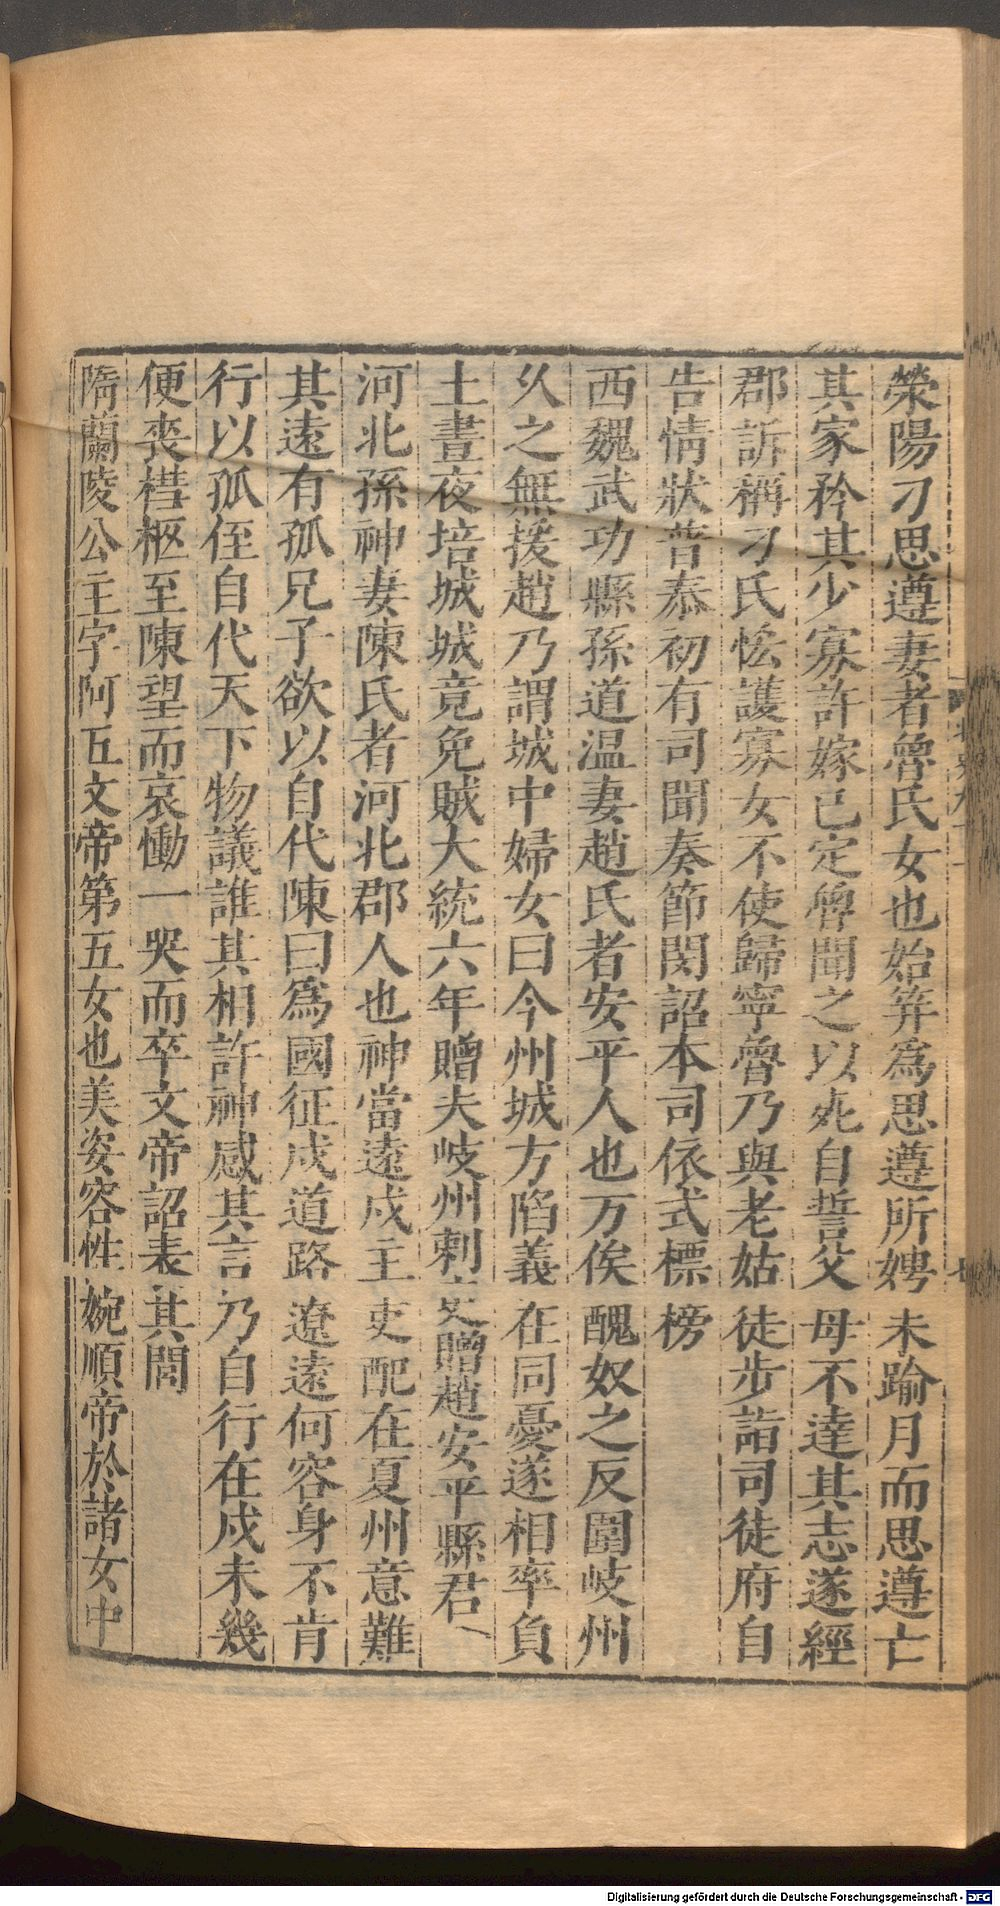 滎陽刁思遵妻者魯氏女也始笄爲思遵所娉未踰月而思遵亡
其家矜其少寡許嫁已定魯聞之以死自誓父母不達其志遂經
郡訴稱刁氏恡護寡女不使歸寧魯乃與老姑徒步詣司徒府自
告情狀普泰初有司聞奏節閔詔本司依式標榜
西魏武功縣孫道温妻趙氏者安平人也万俟醜奴之反圍岐州
久之無援趙乃謂城中婦女曰今州城方陷義在同憂遂相率負
土晝夜培城城竟免賊大統六年贈夫岐州刺史贈趙安平縣君
河北孫神妻陳氏者河北郡人也神當遠戍主吏配在夏州意難
其遠有孤兄子欲以自代陳曰爲國征戍道路遼遠何容身不肯
行以孤侄自代天下物議誰其相許神感其言乃自行在戍未幾
便喪槥柩至陳望而哀慟一哭而卒文帝詔表其閭
隋蘭陵公主字阿五文帝第五女也美姿容性婉順帝於諸女中
Digitalisierung gefördert durch die Deutsche Forschungsgemeinschaft - DFG